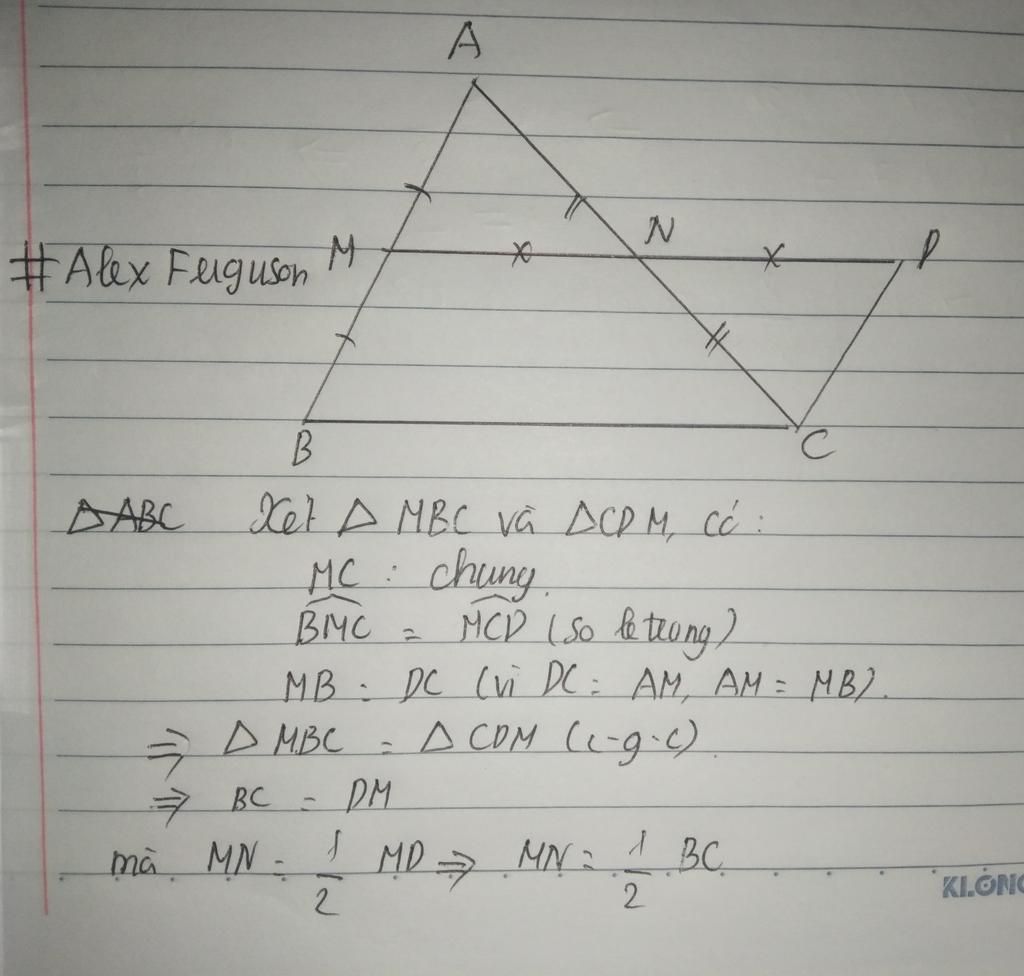 A
M
N
D
#Alex Ferguson
B
C
ΔABC Xét Δ MBC và ΔCDM, có:
MC : chung.
BMC = MCD (so le trong)
MB = DC (vì DC = AM, AM = MB).
⇒ Δ MBC = Δ CDM (c-g-c).
⇒ BC = DM
mà MN = 1/2 MD ⇒ MN = 1/2 BC
KLONG